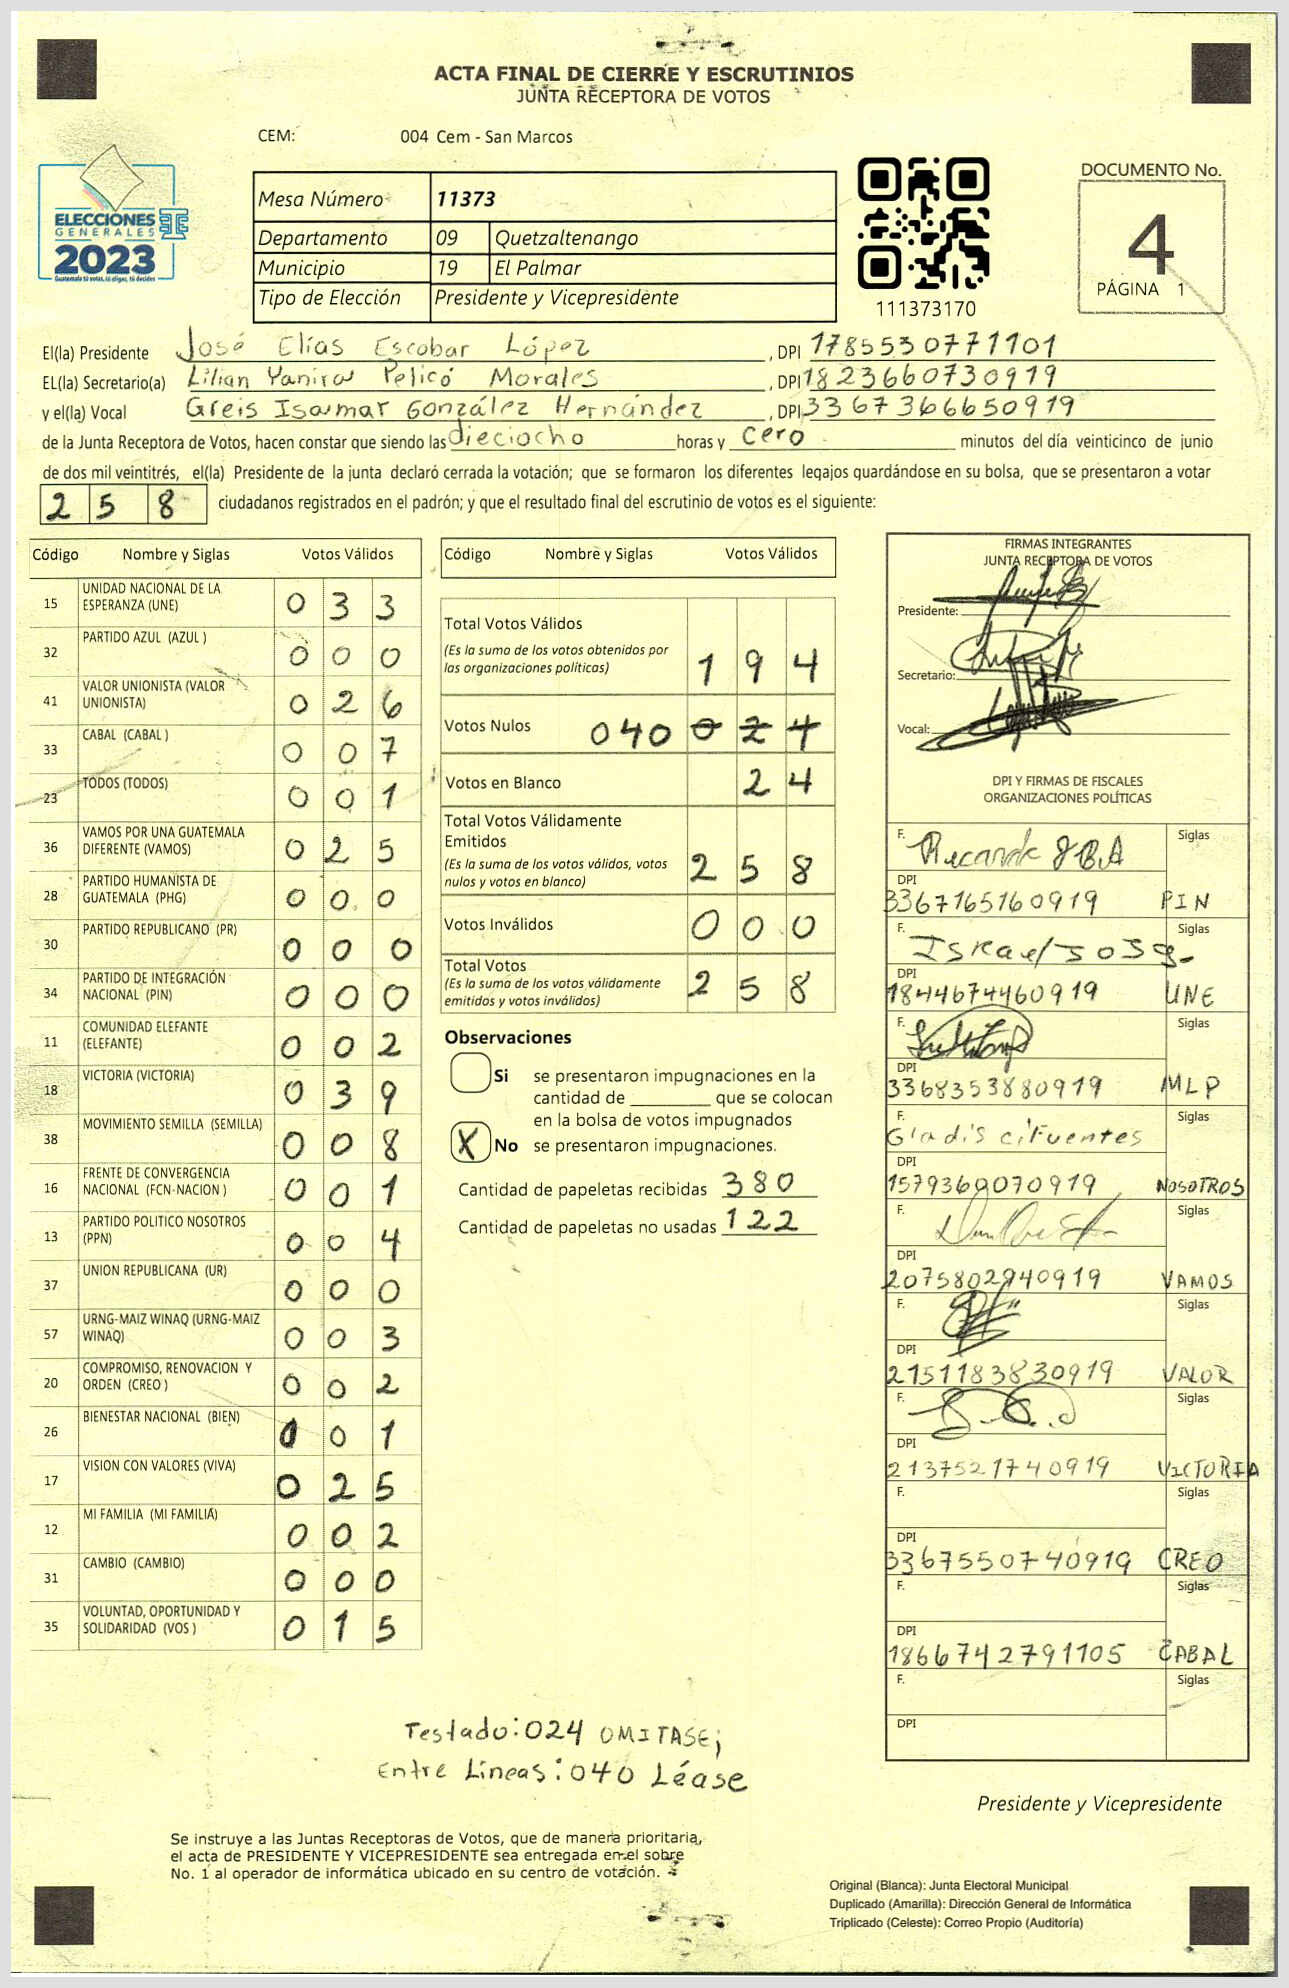 ACTA FINAL DE CIERRE Y ESCRUTINIOS
JUNTA RECEPTORA DE VOTOS
CEM: 004 Cem - San Marcos
ELECCIONES
GENERALES
2023
Guatemala tú votas, tú eliges, tú decides
Mesa Número 11373
Departamento 09 Quetzaltenango
Municipio 19 El Palmar
Tipo de Elección Presidente y Vicepresidente
111373170
DOCUMENTO No.
4
PÁGINA 1
El(la) Presidente José Elías Escobar López , DPI 1785530771101
EL(la) Secretario(a) Lilian Yanira Pelicó Morales , DPI 1823660730919
y el(la) Vocal Greis Isamar González Hernández , DPI 3367366650919
de la Junta Receptora de Votos, hacen constar que siendo las dieciocho horas y cero minutos del día veinticinco de junio
de dos mil veintitrés, el(la) Presidente de la junta declaró cerrada la votación; que se formaron los diferentes legajos guardándose en su bolsa, que se presentaron a votar
258 ciudadanos registrados en el padrón; y que el resultado final del escrutinio de votos es el siguiente:
Código Nombre y Siglas Votos Válidos
15 UNIDAD NACIONAL DE LA ESPERANZA (UNE) 033
32 PARTIDO AZUL (AZUL ) 000
41 VALOR UNIONISTA (VALOR UNIONISTA) 026
33 CABAL (CABAL ) 007
23 TODOS (TODOS) 001
36 VAMOS POR UNA GUATEMALA DIFERENTE (VAMOS) 025
28 PARTIDO HUMANISTA DE GUATEMALA (PHG) 000
30 PARTIDO REPUBLICANO (PR) 000
34 PARTIDO DE INTEGRACIÓN NACIONAL (PIN) 000
11 COMUNIDAD ELEFANTE (ELEFANTE) 002
18 VICTORIA (VICTORIA) 039
38 MOVIMIENTO SEMILLA (SEMILLA) 008
16 FRENTE DE CONVERGENCIA NACIONAL (FCN-NACION ) 001
13 PARTIDO POLITICO NOSOTROS (PPN) 004
37 UNION REPUBLICANA (UR) 000
57 URNG-MAIZ WINAQ (URNG-MAIZ WINAQ) 003
20 COMPROMISO, RENOVACION Y ORDEN (CREO ) 002
26 BIENESTAR NACIONAL (BIEN) 001
17 VISION CON VALORES (VIVA) 025
12 MI FAMILIA (MI FAMILIA) 002
31 CAMBIO (CAMBIO) 000
35 VOLUNTAD, OPORTUNIDAD Y SOLIDARIDAD (VOS ) 015
Código Nombre y Siglas Votos Válidos
Total Votos Válidos
(Es la suma de los votos obtenidos por
las organizaciones políticas) 194
Votos Nulos 040 024
Votos en Blanco 24
Total Votos Válidamente
Emitidos
(Es la suma de los votos válidos, votos
nulos y votos en blanco) 258
Votos Inválidos 000
Total Votos
(Es la suma de los votos válidamente
emitidos y votos inválidos) 258
Observaciones
Si se presentaron impugnaciones en la
cantidad de ________ que se colocan
en la bolsa de votos impugnados
X No se presentaron impugnaciones.
Cantidad de papeletas recibidas 380
Cantidad de papeletas no usadas 122
FIRMAS INTEGRANTES
JUNTA RECEPTORA DE VOTOS
Presidente:
Secretario:
Vocal:
DPI Y FIRMAS DE FISCALES
ORGANIZACIONES POLÍTICAS
F. Siglas
DPI
3367165160919 PIN
F. Israel José Siglas
DPI
1844674460919 UNE
F. Siglas
DPI
3368353880919 MLP
F. Gladis cifuentes Siglas
DPI
1579360070919 NOSOTROS
F. Siglas
DPI
2075802940919 VAMOS
F. Siglas
DPI
2151183830919 VALOR
F. Siglas
DPI
2137521740919 VICTORIA
F. Siglas
DPI
3367550740919 CREO
F. Siglas
DPI
1866742791105 CABAL
F. Siglas
DPI
Testado: 024 OMITASE;
Entre Líneas: 040 Léase
Presidente y Vicepresidente
Se instruye a las Juntas Receptoras de Votos, que de manera prioritaria,
el acta de PRESIDENTE Y VICEPRESIDENTE sea entregada en el sobre
No. 1 al operador de informática ubicado en su centro de votación.
Original (Blanca): Junta Electoral Municipal
Duplicado (Amarilla): Dirección General de Informática
Triplicado (Celeste): Correo Propio (Auditoría)